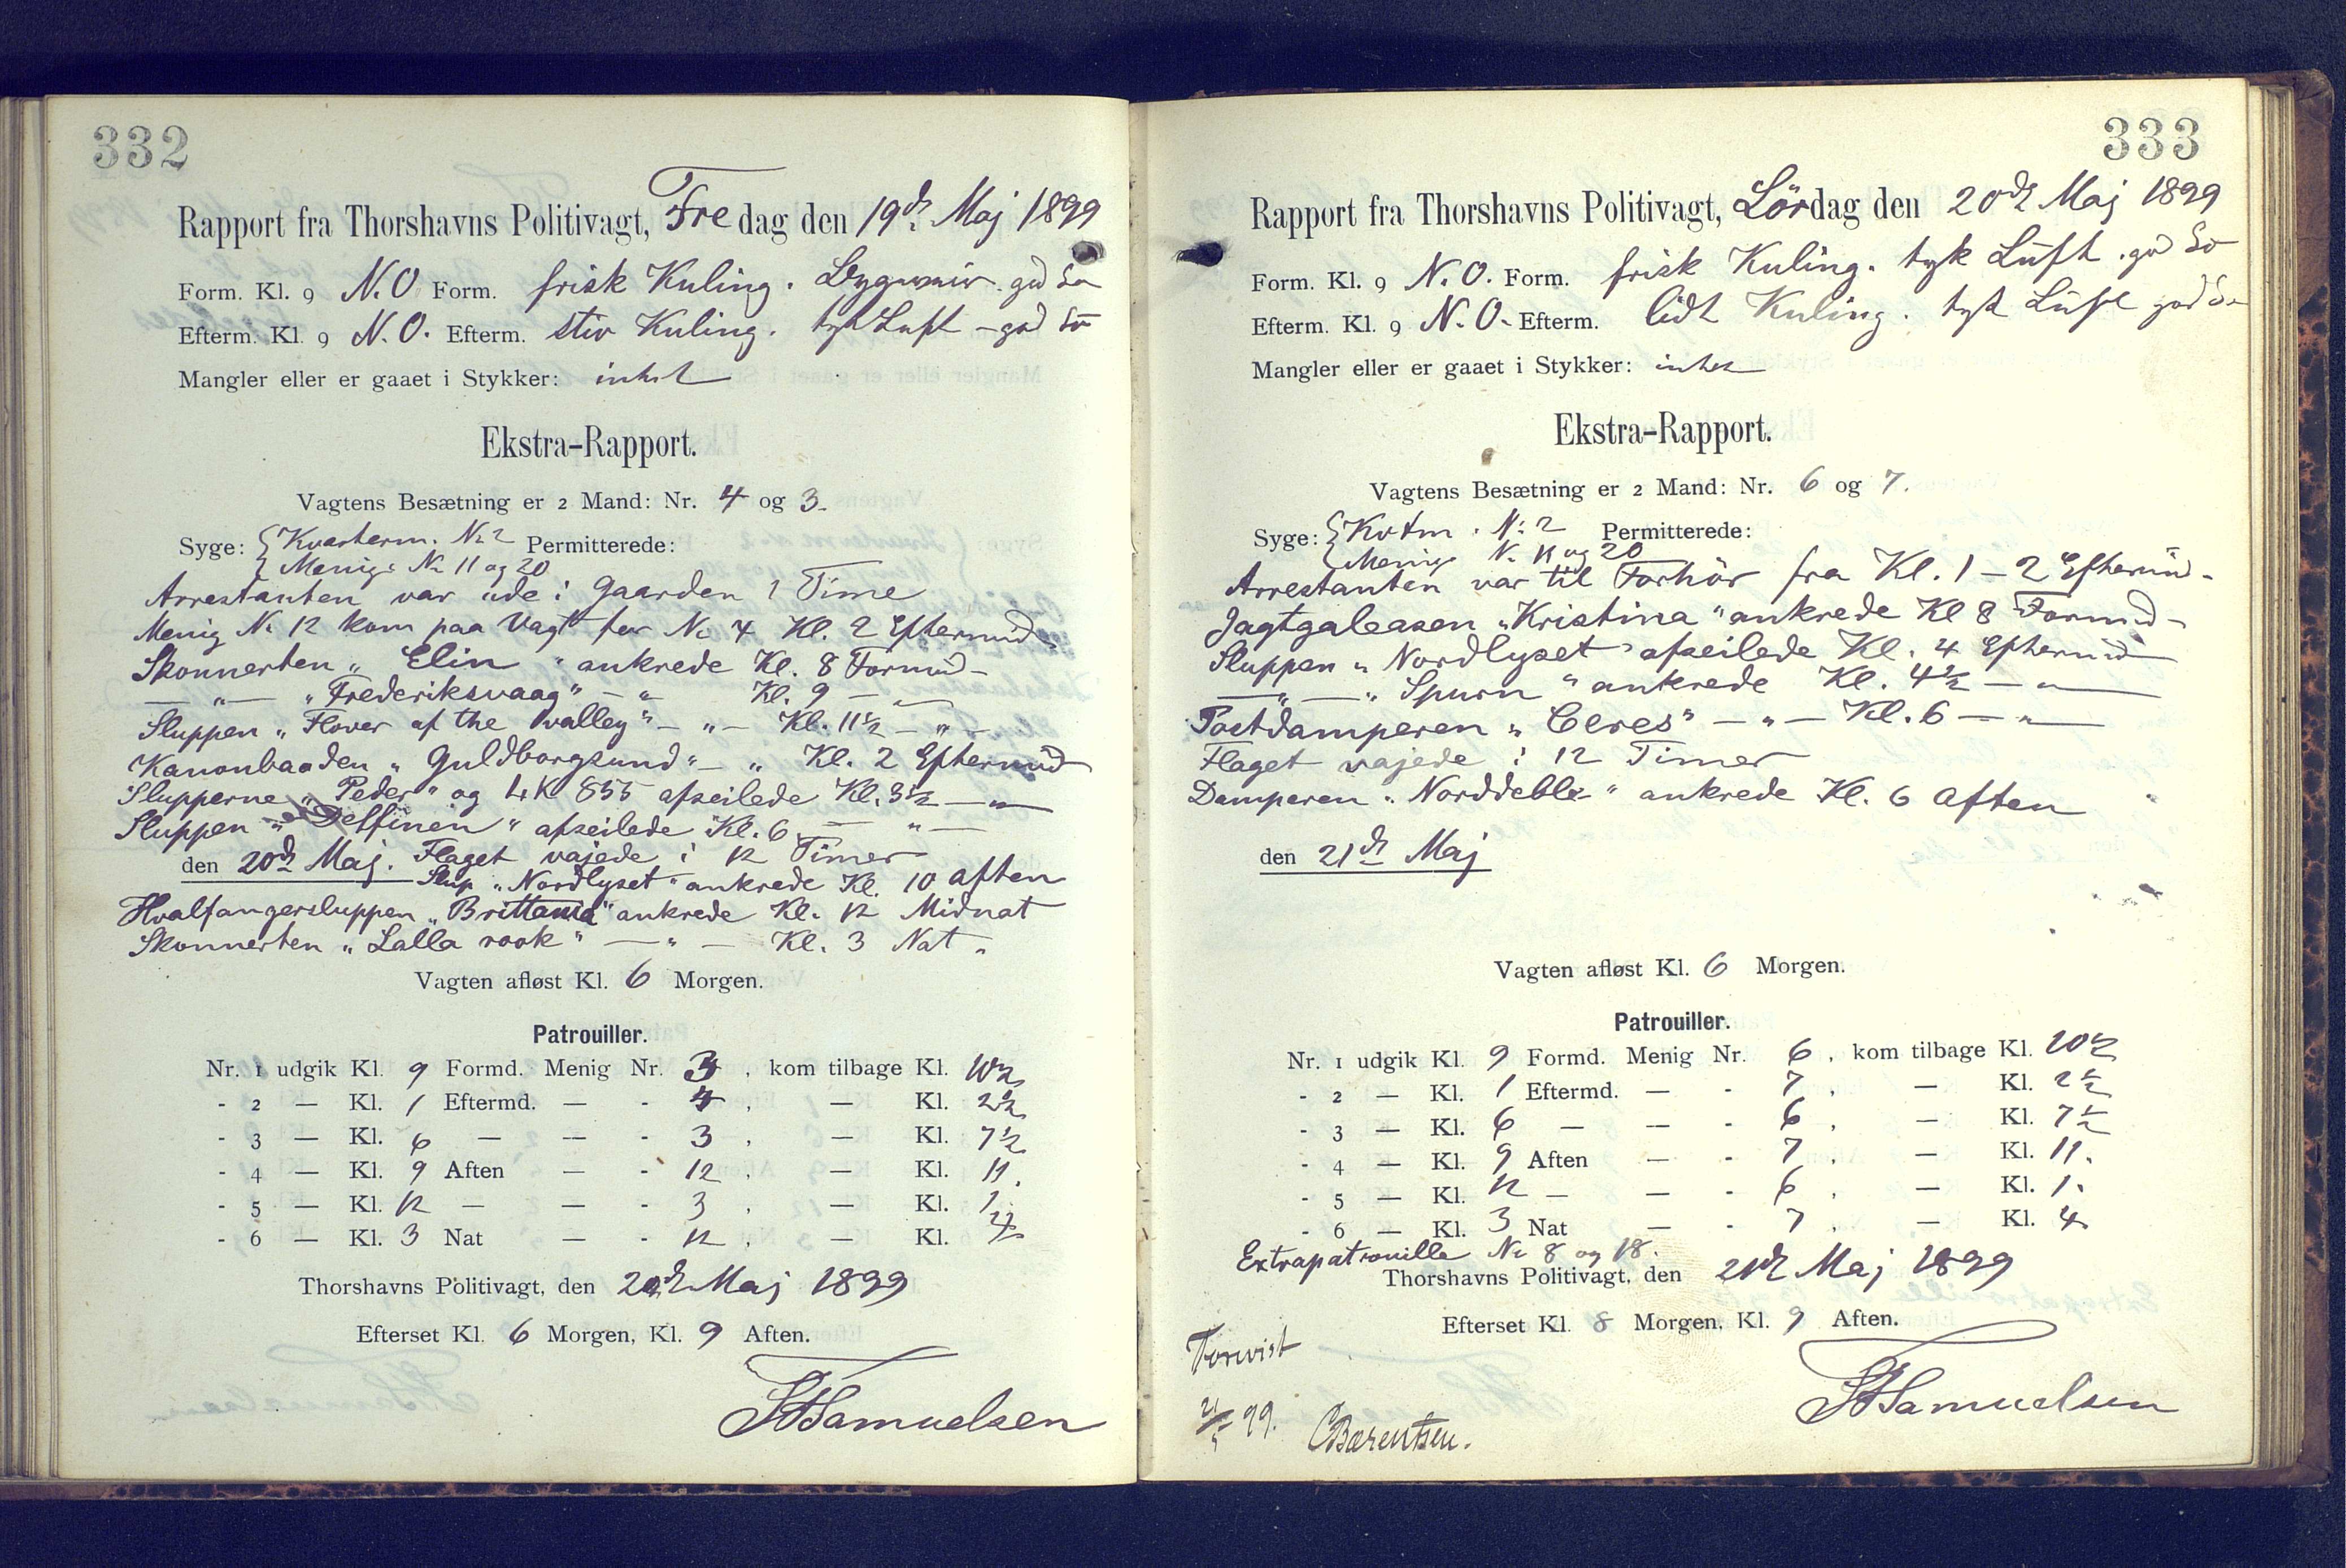 332
Rapport fra Thorshavns Politivagt, Fredag den 19de Maj 1899
Form. Kl. 9 N.O Form. frisk Kuling. Bygveir. god Sø
Efterm. Kl. 9 N.O. Efterm. stiv Kuling. tyk Luft - god Sö
Mangler eller er gaaet i Stykker: intet
Ekstra-Rapport.
Vagtens Besætning er 2 Mand: Nr. 4 og 3.
Syge: { Kvarterm. No 2 Permitterede:
{ Menige No 11 og 20
Arrestanten var ude i Gaarden 1 Time
Menig No 12 kom paa Vagt for No 4 Kl. 2 Eftermid-
Skonnerten „ Elin " ankrede Kl. 8 Formid-
— " — „Frederiksvaag" — " Kl. 9 — " —
Sluppen „ Flover af the valley" — „ — Kl. 11 1/2 — „ —
Kanonbaaden „ Guldborgsund" — „ Kl. 2 Eftermid
Slupperne „Peder" og LK 855 afseilede Kl. 3 1/2 — " —
Sluppen „Delfinen" afseilede Kl. 6 — " —
den 20de Maj. Flaget vajede i 12 Timer
Slup „Nordlyset" ankrede Kl. 10 aften
Hvalfangersluppen „Brittania" ankrede Kl. 12 Midnat
Skonnerten „Lalla rook" — " — Kl. 3 Nat „
Vagten afløst Kl. 6 Morgen.
Patrouiller.
Nr. 1 udgik Kl. 9 Formd. Menig Nr. 3, kom tilbage Kl. 10 1/2
- 2 — Kl. 1 Eftermd. — - 4, — Kl. 2 1/2
- 3 — Kl. 6 — — - 3, — Kl. 7 1/2
- 4 — Kl. 9 Aften — - 12, — Kl. 11.
- 5 — Kl. 12 — — - 3, — Kl. 1.
- 6 — Kl. 3 Nat — - 12, — Kl. 4
Thorshavns Politivagt, den 20de Maj 1899
Efterset Kl. 6 Morgen, Kl. 9 Aften.
Samuelsen
333
Rapport fra Thorshavns Politivagt, Lördag den 20de Maj 1899
Form. Kl. 9 N.O. Form. frisk Kuling. tyk Luft. god Sö
Efterm. Kl. 9 N.O. Efterm. lidt Kuling. tyk Luft god Sö
Mangler eller er gaaet i Stykker: intet
Ekstra-Rapport.
Vagtens Besætning er 2 Mand: Nr. 6 og 7.
Syge: { Kvtm. No 2 Permitterede:
{ Menig No 11 og 20
Arrestanten var til Forhör fra Kl. 1 - 2 Eftermid-
Jagtgaleasen „Kristina" ankrede Kl 8 Formid-
Sluppen „ Nordlyset" afseilede Kl. 4 Eftermid
— " — „ Spurn " ankrede Kl. 4 1/2 — " —
Postdamperen „ Ceres" — " — Kl. 6 — " —
Flaget vajede i 12 Timer
Damperen „ Norddeble " ankrede Kl. 6 Aften
den 21de Maj
Vagten afløst Kl. 6 Morgen.
Patrouiller.
Nr. 1 udgik Kl. 9 Formd. Menig Nr. 6, kom tilbage Kl. 10 1/2
- 2 — Kl. 1 Eftermd. — - 7, — Kl. 2 1/2
- 3 — Kl. 6 — — - 6, — Kl. 7 1/2
- 4 — Kl. 9 Aften — - 7, — Kl. 11.
- 5 — Kl. 12 — — - 6, — Kl. 1.
- 6 — Kl. 3 Nat — - 7, — Kl. 4
Extrapatrouille No 8 og 18.
Thorshavns Politivagt, den 21de Maj 1899
Efterset Kl. 8 Morgen, Kl. 9 Aften.
Forevist
21/5 99. CBærentsen.
Samuelsen